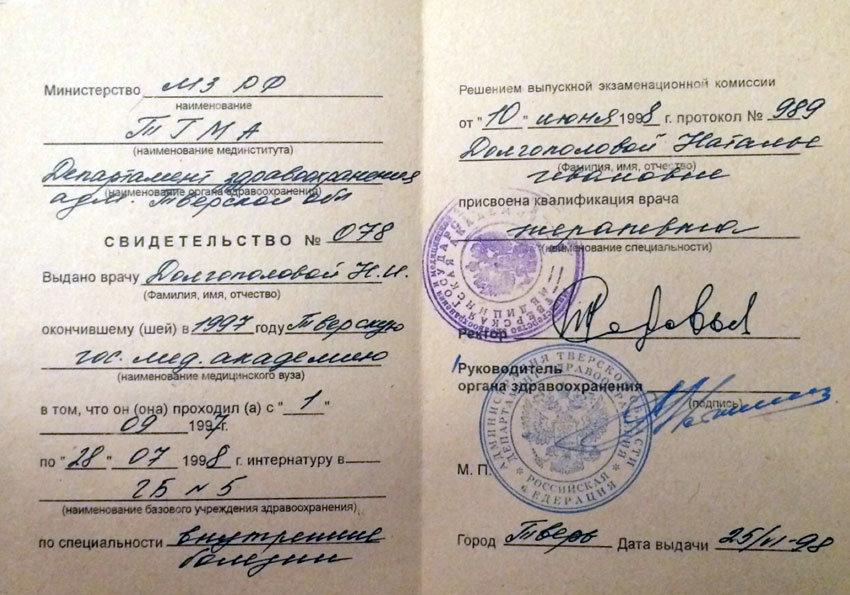 Министерство МЗ РФ
наименование
ТГМА
(наименование мединститута)
Департамент здравоохранения
(наименование органа здравоохранения)
адм. Тверской обл
СВИДЕТЕЛЬСТВО № 078
Выдано врачу Долгополовой Н.И.
(Фамилия, имя, отчество)
окончившему (шей) в 1997 году Тверскую
гос. мед. академию
(наименование медицинского вуза)
в том, что он (она) проходил (а) с "1"
09 1997г.
по "28" 07 1998 г. интернатуру в
ГБ № 5
(наименование базового учреждения здравоохранения)
по специальности внутренние
болезни
Решением выпускной экзаменационной комиссии
от "10" июня 1998 г. протокол № 989
Долгополовой Наталье
(Фамилия, имя, отчество)
Ивановне
присвоена квалификация врача
терапевта
(наименование специальности)
Ректор
Руководитель
органа здравоохранения
(подпись)
М. П.
АДМИНИСТРАЦИЯ ТВЕРСКОЙ ОБЛАСТИ
ДЕПАРТАМЕНТ ЗДРАВООХРАНЕНИЯ
РОССИЙСКАЯ
ФЕДЕРАЦИЯ
Город Тверь Дата выдачи 25/VI-98